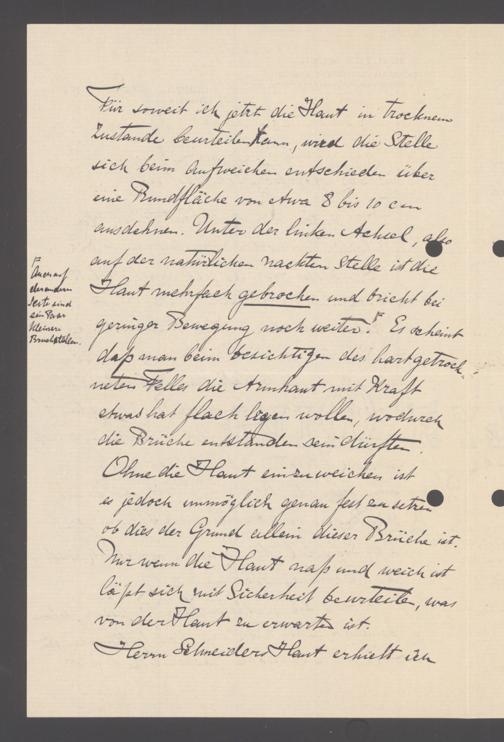 Für soweit ich jetzt die Haut in trocknem
Zustande beurteilen kann, wird die Stelle
sich beim Aufweichen entschieden über
eine Rundfläche von etwa 8 bis 10 cm
ausdehnen. Unter der linken Achsel, also
auf der natürlichen nackten Stelle ist die
Haut mehrfach gebrochen und bricht bei
geringer Bewegung noch weiter. F Es scheint
daß man beim besichtigen des hartgetrock-
neten Felles die Armhaut mit Kraft
etwas hat flach legen wollen, wodurch
die Brüche entstanden sein dürften.
Ohne die Haut einzuweichen ist
es jedoch unmöglich genau fest zu setzen
ob dies der Grund allein dieser Brüche ist.
Nur wenn die Haut naß und weich ist
läßt sich mit Sicherheit beurteilen, was
von der Haut zu erwarten ist.
Herrn Schneiders Haut erhielt ich
F
Auch auf
der andern
Seite sind
ein Paar
kleinere
Bruchstellen.